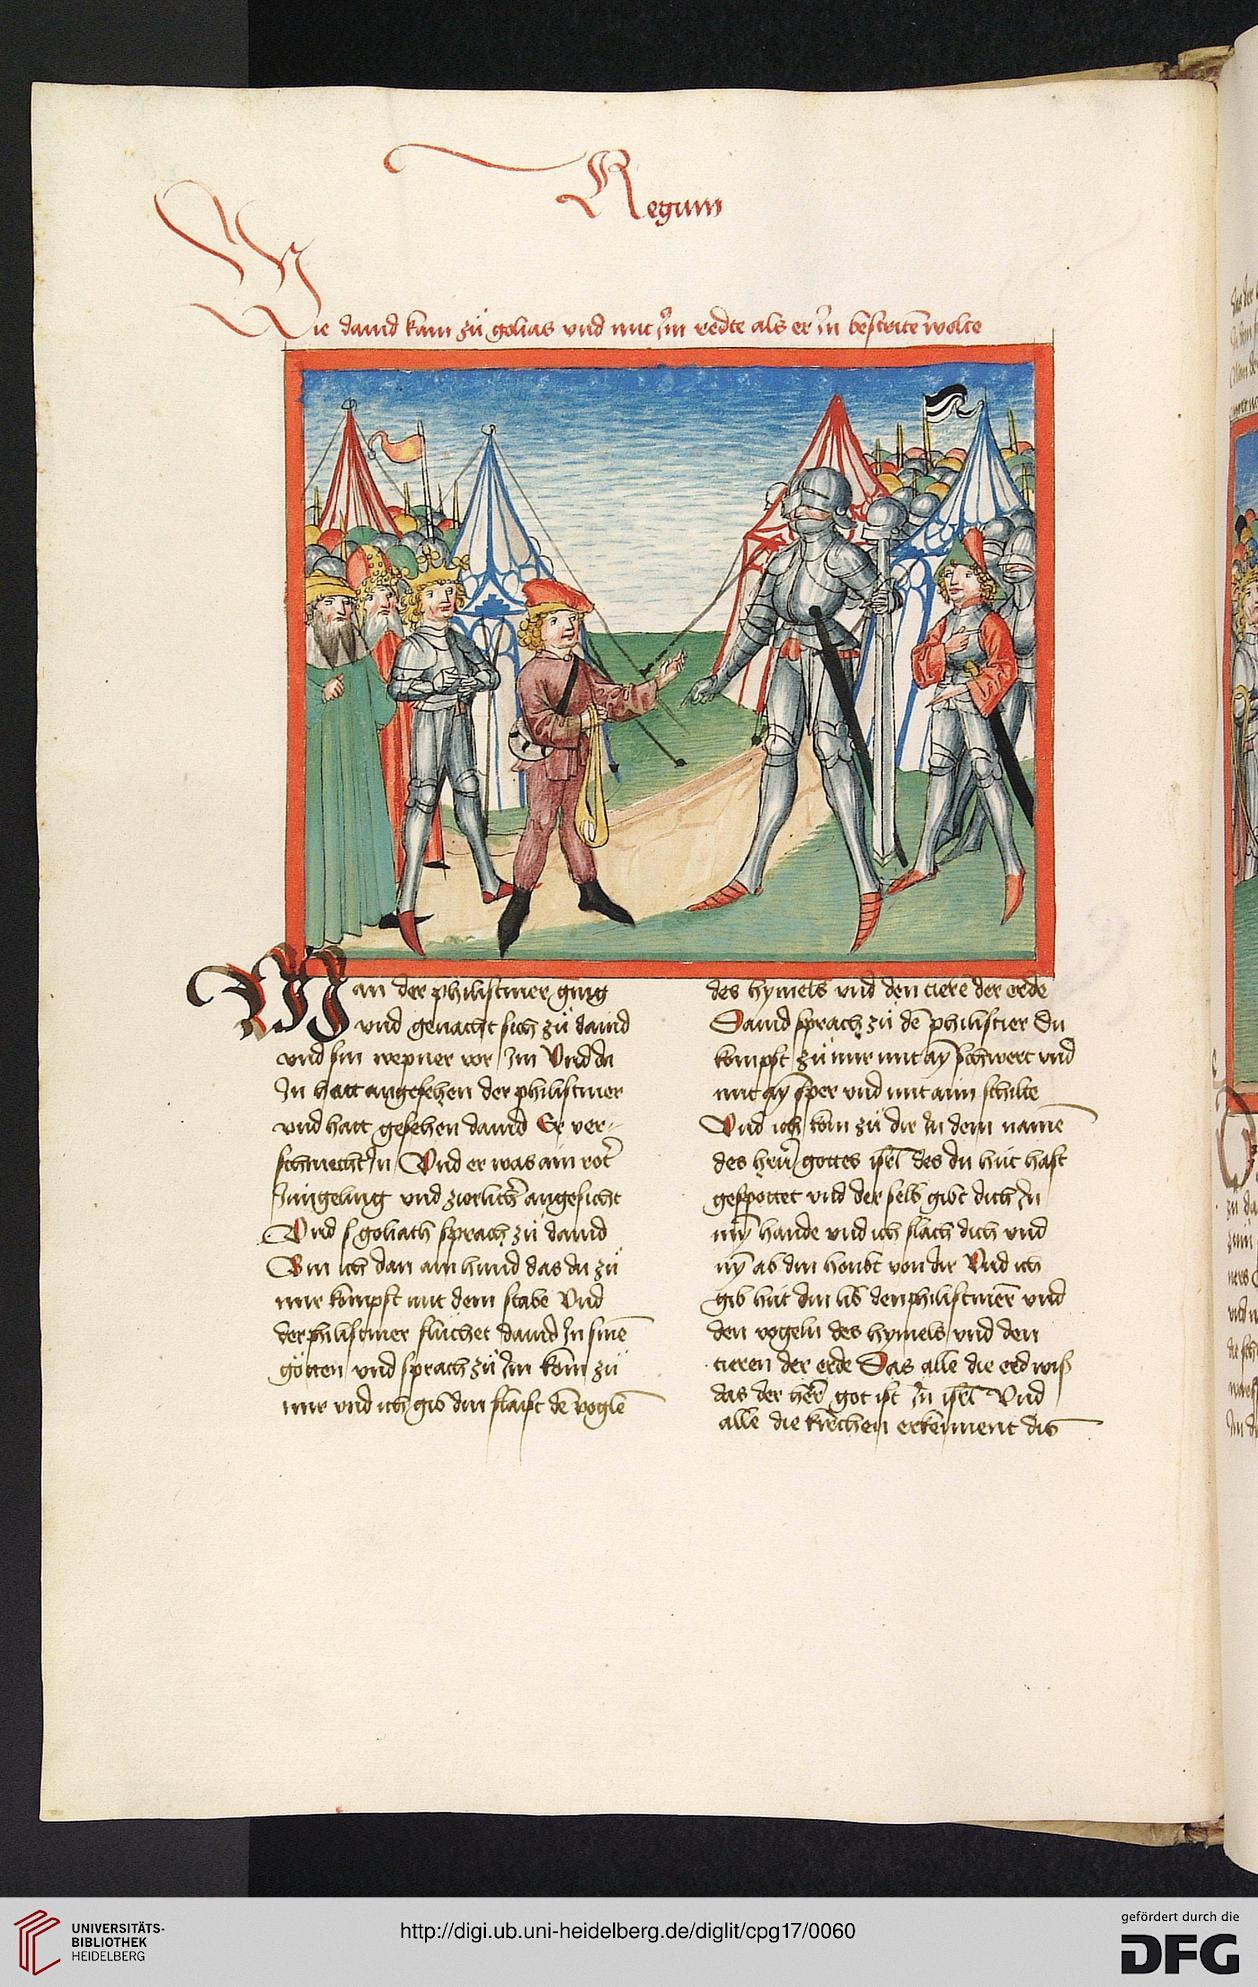 Regum
Wie dauid kam zů golias vnd mit Jm redte als er Jn bestriten wolte
Man der philistiner ging
vnd genacht sich zů dauid
vnd sin wepner vor Jm Vnd da
Jn hatt angesehen der philistiner
vnd hatt gesehen dauid Er ver-
schmecht Jn Vnd er was ain rot
Jüngeling vnd zierlich angesicht
Vnd goliath sprach zů dauid
Bin ich dan ain hund das du zů
mir kompst mit dem stabe Vnd
der philistiner flůchet dauid Jn sinē
götten vnd sprach zů Jm kom zů
mir vnd ich gib din flaist dē voglē
des hymels vnd den tierē der erde
Dauid sprach zů dē philistier Du
kompst zů mir mit ay schwert vnd
mit ay sper vnd mit aim schilte
Vnd ich kom zů dir Jn dem namē
des herr gottes isrl des du hüt hast
gespottet vnd der selb gibt dich Jn
my hande vnd ich slach dich vnd
ny ab din houbt von dir Vnd ich
gib hüt din lib den philistinern vnd
den vogeln des hymels vnd den
tieren der erde Das alle die erd wiß
das der herr got ist Jn isrl Vnd
alle die kirchen erkennent dis
UNIVERSITÄTS-
BIBLIOTHEK
HEIDELBERG
http://digi.ub.uni-heidelberg.de/diglit/cpg17/0060
gefördert durch die
DFG